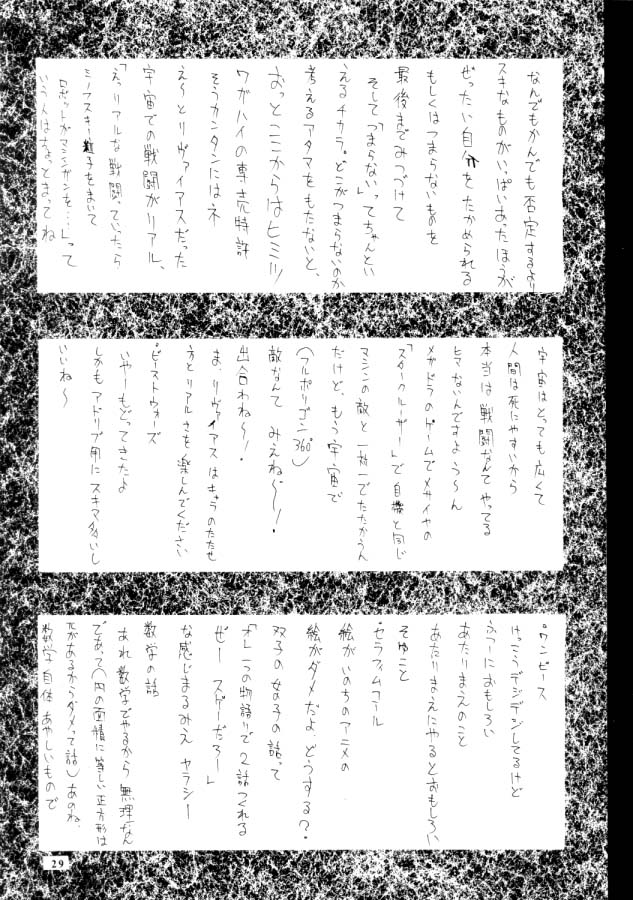 なんでもかんでも否定するより
スキなものがいっぱいあったほうが
ぜったい自分をたかめられる
もしくはつまらないものを
最後までみつづけて
そして「つまらない」ってちゃんとい
えるチカラ。どこがつまらないのか
考えるアタマをもたないと、
おっとここからはヒミツ
ワガハイの専売特許
そうカンタンにはネ
え〜とリヴァイアスだった
宇宙での戦闘がリアル、
「えっリアルな戦闘っていったら
ミノフスキー粒子をまいて
ロボットがマシンガンを…」って
いう人はちょっとまってね
宇宙はとっても広くて
人間は死にやすいから
本当は戦闘なんてやってる
ヒマないんですよう〜ん
メガドラのゲームでメサイヤの
「スタークルーザー」で自機と同じ
マシンの敵と一対一でたたかうん
だけど、もう宇宙で
(フルポリゴン360°)
敵なんてみえね〜〜!
出合わね〜〜!
ま、リヴァイアスはキャラのたたせ
方とリアルさを楽しんでください
°ビーストウォーズ
いやーもどってきたよ
しかもアドリブ用にスキマ多いし
いいね〜
°ワンピース
けっこうデジデジしてるけど
ふつーにおもしろい
あたりまえのこと
あたりまえにやるとおもしろい
そゆこと
°セラフィムコール
絵がいのちのアニメの
絵がダメだよ、どうする?
双子の女の子の話って
「オレ一つの物語りで2話つくれる
ぜー スゲーだろー」
な感じまるみえ ヤラシー
数学の話
あれ数学でやるから無理なん
であって(円の面積に等しい正方形は
πがあるからダメって話)あのね、
数学自体あやしいもので
29